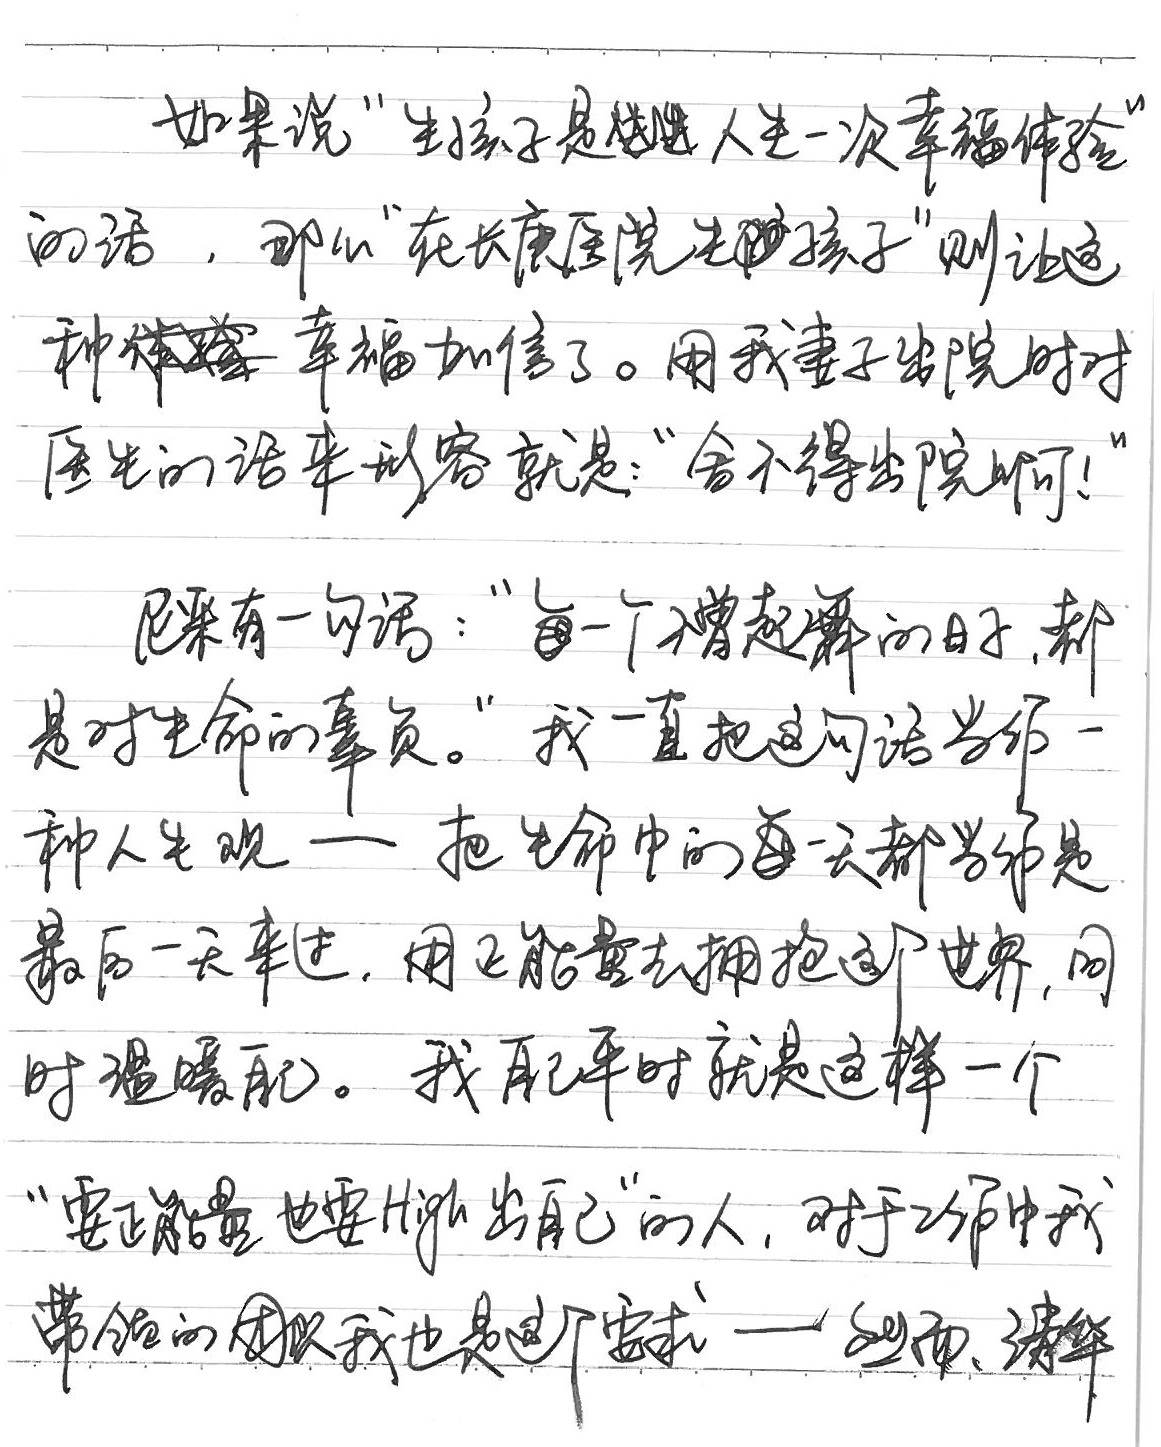 如果说“生孩子是人生一次幸福体验”
的话，那么“在长庚医院生孩子”则让这
种幸福加倍了。用我妻子出院时对
医生的话来形容就是：“舍不得出院啊！”
尼采有一句话：“每一个不曾起舞的日子，都
是对生命的辜负。”我一直把这句话当作一
种人生观——把生命中的每一天都当作是
最后一天来过，用正能量去拥抱这个世界，同
时温暖自己。我自己平时就是这样一个
“要正能量也要High出自己”的人，对于工作中我
带领的团队我也是这个要求——然而、清华